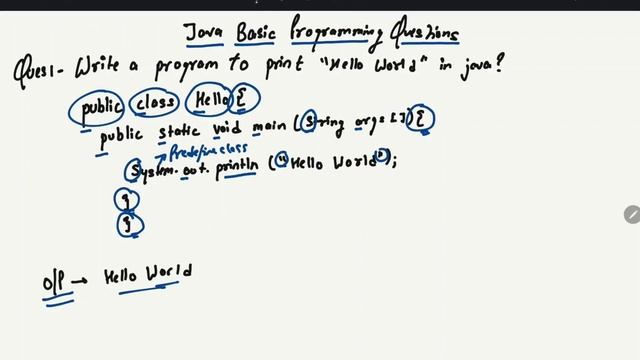 Java Basic Programming Questions
Ques1- Write a program to print "Hello World" in java?
public class Hello {
public static void main (String args []) {
Predefine class
System.out.println ("Hello World");
}
}
O/P → Hello World